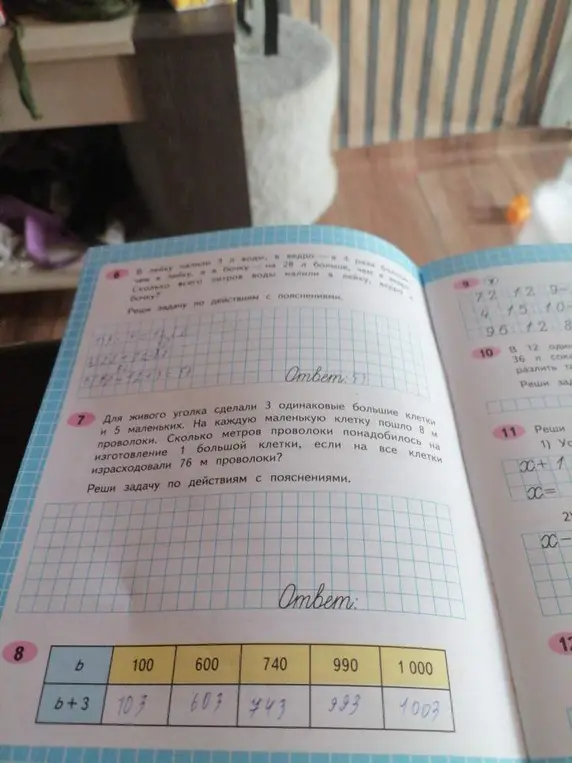 6 В лейку налили 3 л воды, в ведро — в 4 раза больше,
чем в лейку, а в бочку — на 28 л больше, чем в ведро.
Сколько всего литров воды налили в лейку, ведро и
бочку?
Реши задачу по действиям с пояснениями.
Ответ:
7 Для живого уголка сделали 3 одинаковые большие клетки
и 5 маленьких. На каждую маленькую клетку пошло 8 м
проволоки. Сколько метров проволоки понадобилось на
изготовление 1 большой клетки, если на все клетки
израсходовали 76 м проволоки?
Реши задачу по действиям с пояснениями.
Ответ:
8 b 100 600 740 990 1 000
b + 3 103 603 743 993 1003
9
72 12 9-
4 15 10-
96 12 8
10 В 12
36 л
разлить
Реши
11 Реши
1)
x+ 1
x=
2)
x-
12